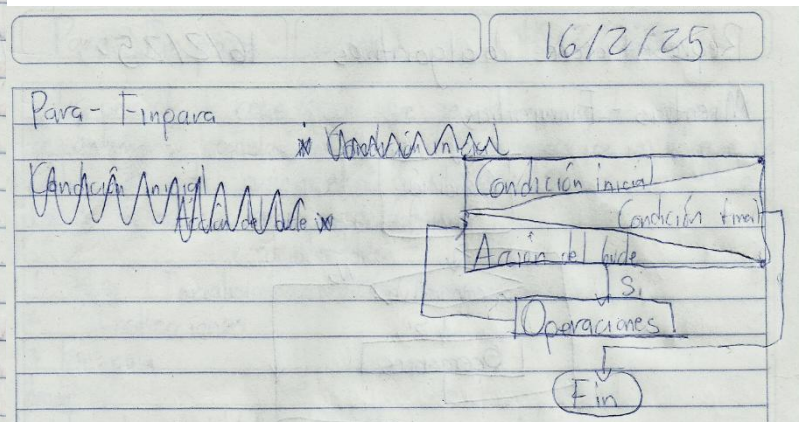 16/2/25
Para - Finpara
Condición inicial
Condición final
Acción del bucle
Si
Operaciones
Fin